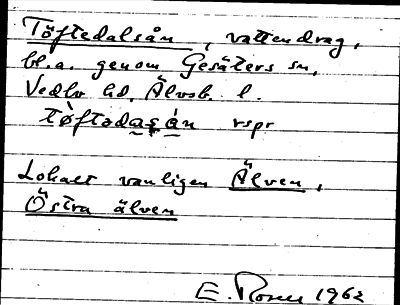 Töftedalsån, vattendrag,
bl.a. genom Gesäters sn,
Vedbo hd. Älvsb. l.
tø̀ftədaṣán rspr
Lokalt vanligen Älven,
Östra älven
E. Rosell 1962